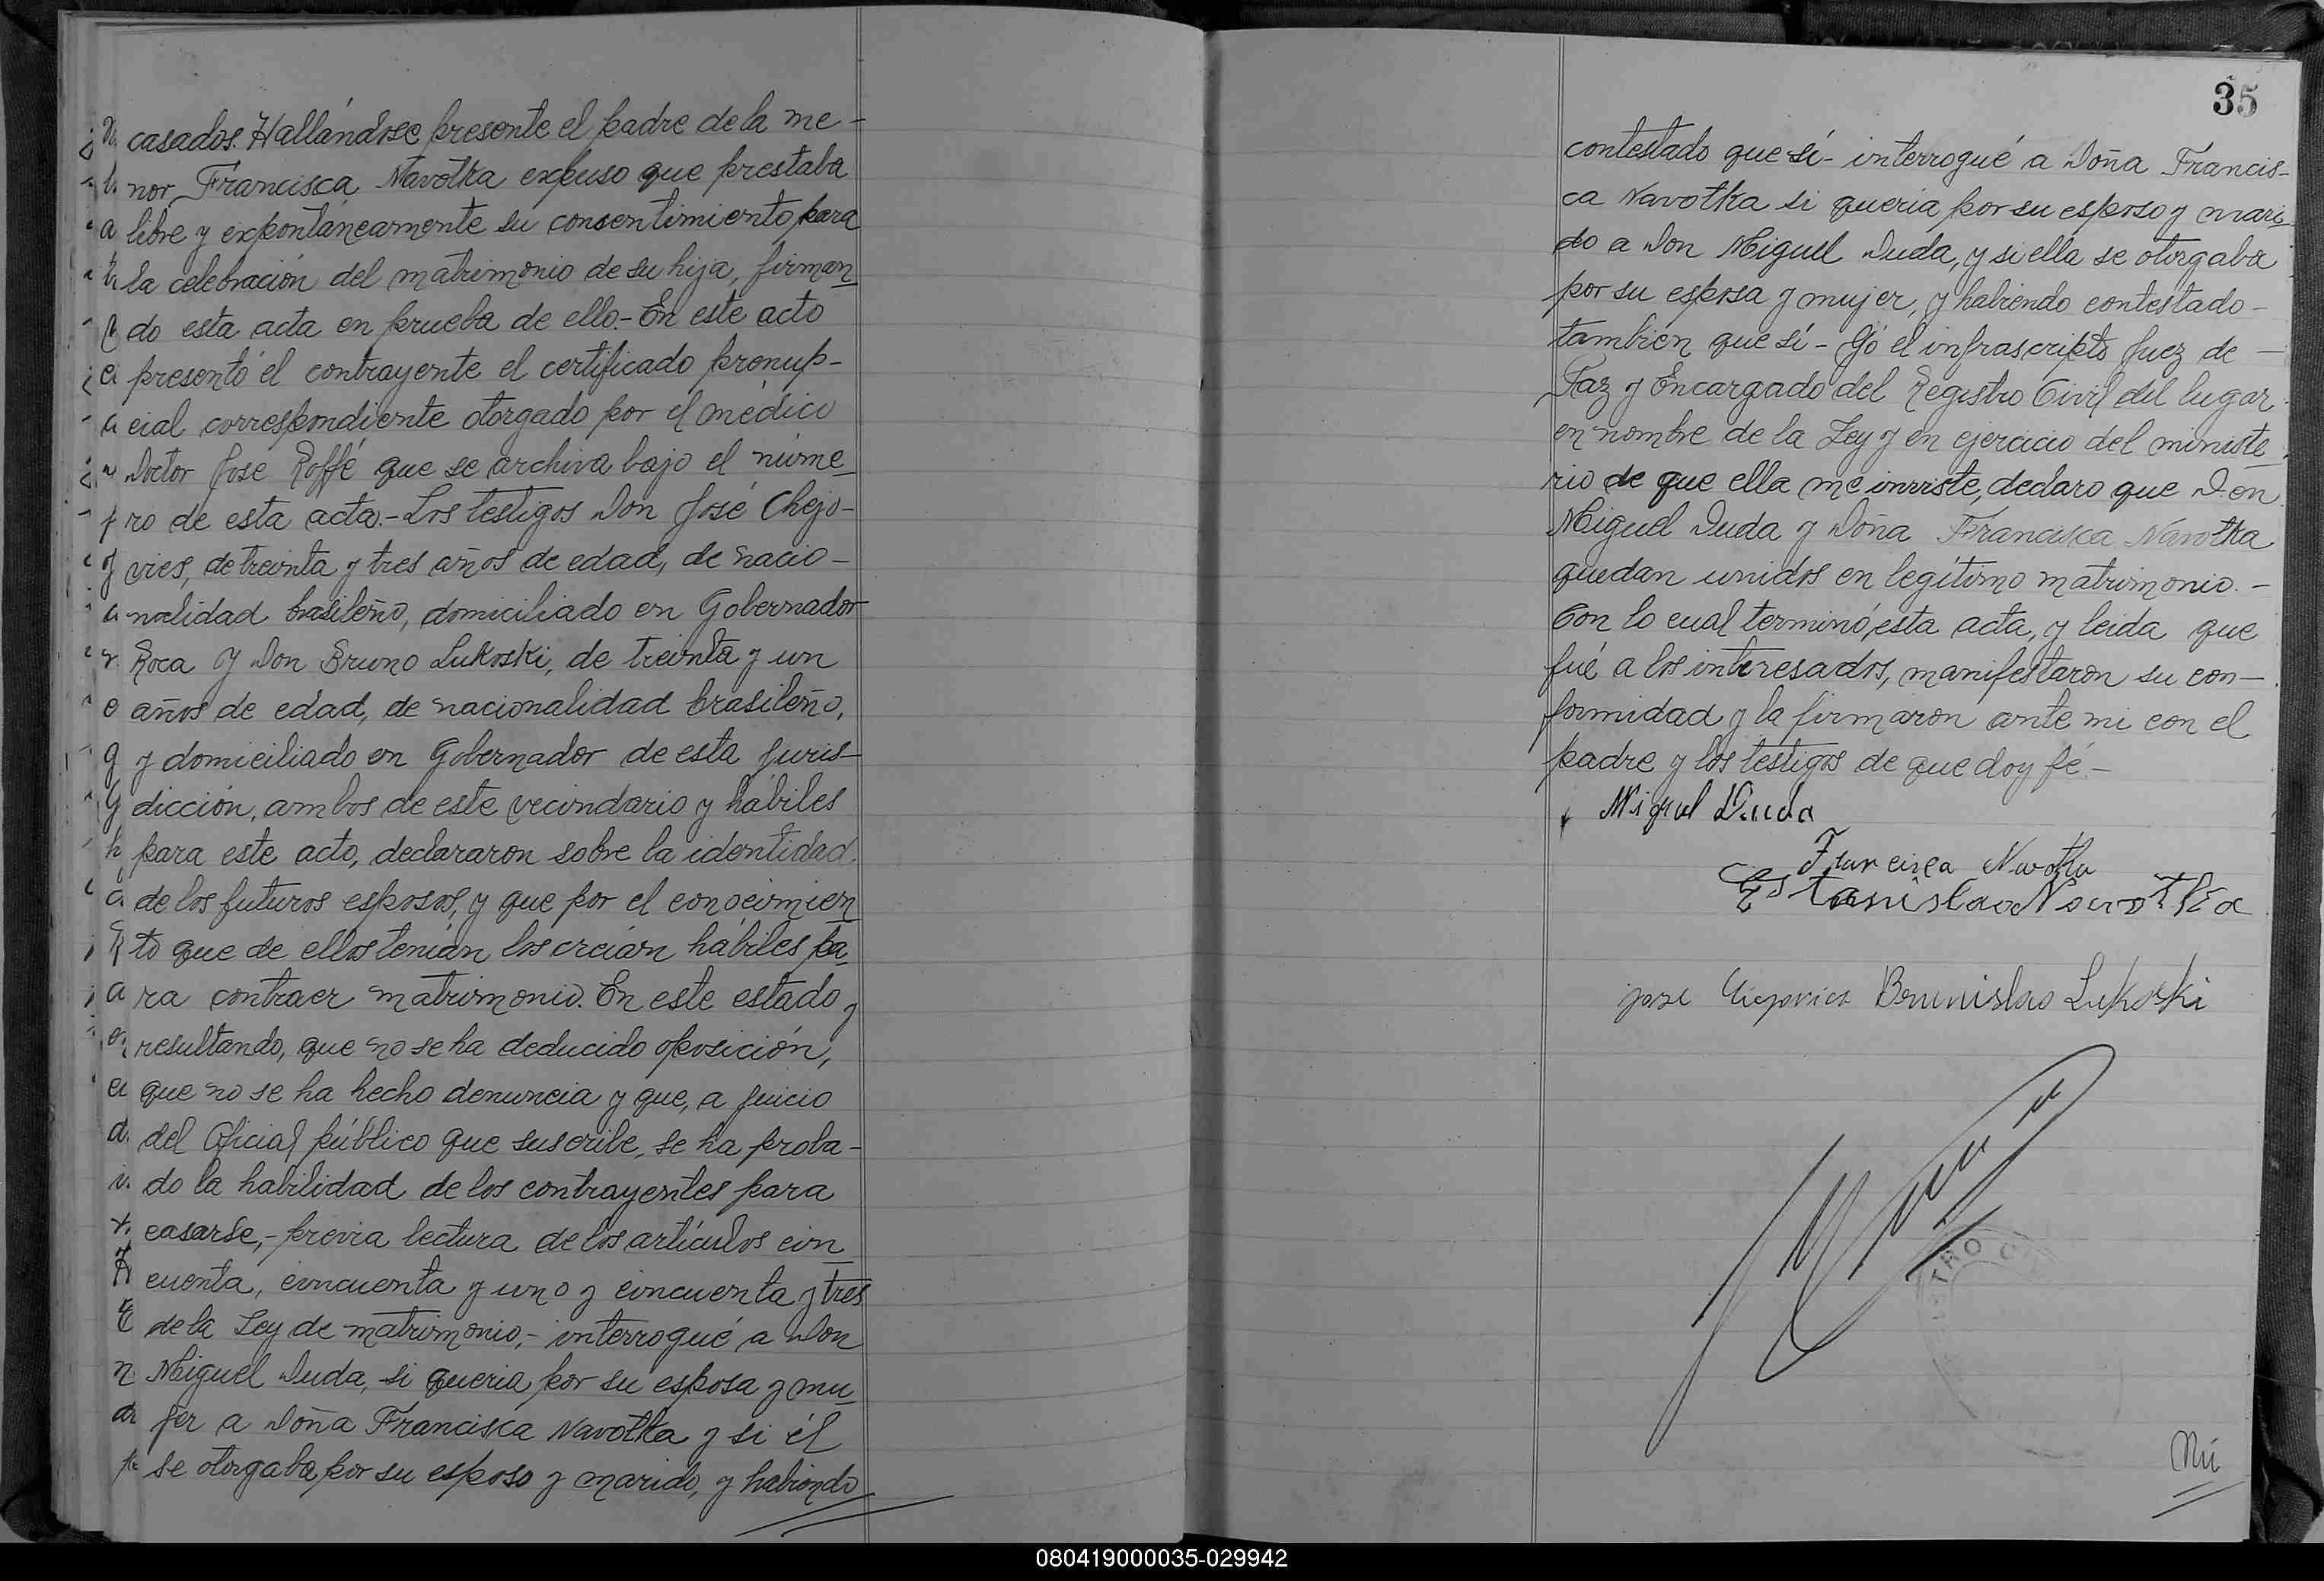 casados. Hallándose presente el padre de la me-
nor Francisca Navotka expuso que prestaba
libre y expontáneamente su consentimiento para
la celebración del matrimonio de su hija, firman
do esta acta en prueba de ello.- En este acto
presentó el contrayente el certificado prenup-
cial correspondiente otorgado por el médico
Doctor José Roffé que se archiva bajo el núme
ro de esta acta.- Los testigos Don José Chejo-
vies, de treinta y tres años de edad, de nacio-
nalidad brasileño, domiciliado en Gobernador
Roca y Don Bruno Lukoski, de treinta y un
años de edad, de nacionalidad brasileño,
y domiciliado en Gobernador de esta juris-
dicción, ambos de este vecindario y hábiles
para este acto, declararon sobre la identidad
de los futuros esposos, y que por el conocimien
to que de ellos tenían los creían hábiles pa
ra contraer matrimonio. En este estado y
resultando, que no se ha deducido oposición,
que no se ha hecho denuncia y que, a juicio
del Oficial público que suscribe, se ha proba-
do la habilidad de los contrayentes para
casarse,- previa lectura de los artículos cin
cuenta, cincuenta y uno y cincuenta y tres
de la Ley de matrimonio,- interrogué a Don
Miguel Duda, si quería por su esposa y mu
jer a Doña Francisca Navotka y si él
se otorgaba por su esposo y marido, y habiendo
35
contestado que sí- interrogué a Doña Francis-
ca Navotka si quería por su esposo y mari
do a Don Miguel Duda, y si ella se otorgaba
por su esposa y mujer, y habiendo contestado-
también que sí- Yó el infrascripto Juez de-
Paz y Encargado del Registro Civil del lugar
en nombre de la Ley y en ejercicio del ministe
rio de que ella me inviste, declaro que Don
Miguel Duda y Doña Francisca Navotka
quedan unidos en legítimo matrimonio.-
Con lo cual terminó esta acta, y leida que
fué a los interesados, manifestaron su con-
formidad y la firmaron ante mi con el
padre y los testigos de que doy fé.-
Miguel Duda
Francisca Navotka
Estanislao Navotka
Jose Brunislao Lukoski
Nú
080419000035-029942